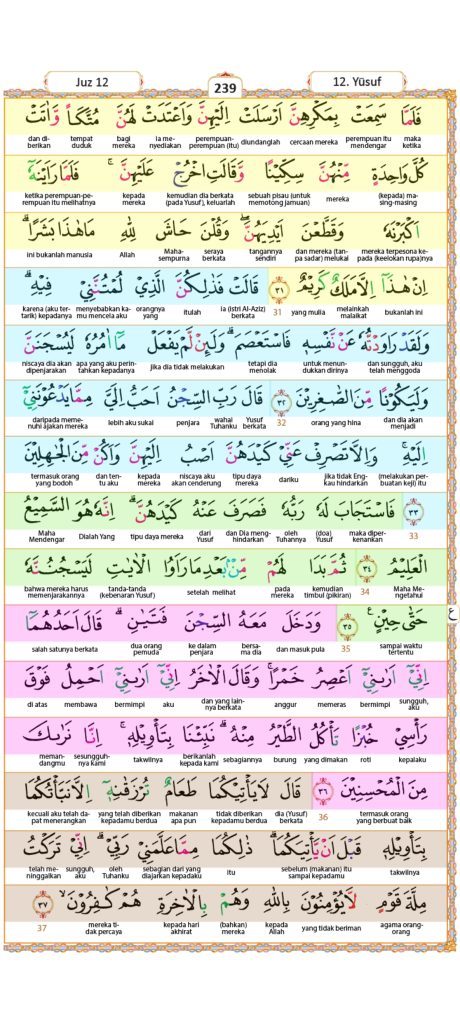 Juz 12
239
12. Yūsuf
فَلَمَّا سَمِعَتْ بِمَكْرِهِنَّ اَرْسَلَتْ اِلَيْهِنَّ وَاَعْتَدَتْ لَهُنَّ مُتَّكَـًٔا وَّاٰتَتْ
dan di- tempat bagi ia me- perempuan- perempuan itu maka
berikan duduk mereka nyediakan perempuan (itu) diundanglah cercaan mereka mendengar ketika
كُلَّ وَاحِدَةٍ مِّنْهُنَّ سِكِّيْنًا وَّقَالَتِ اخْرُجْ عَلَيْهِنَّ ۚ فَلَمَّا رَاَيْنَهٗٓ
ketika perempuan-pe- kepada kemudian dia berkata sebuah pisau (untuk (kepada) ma-
rempuan itu melihatnya mereka (pada Yusuf), keluarlah memotong jamuan) mereka sing-masing
اَكْبَرْنَهٗ وَقَطَّعْنَ اَيْدِيَهُنَّ ۖ وَقُلْنَ حَاشَ لِلّٰهِ مَا هٰذَا بَشَرًا ۗ
Maha- seraya tangannya dan mereka (tan- mereka terpesona ke-
ini bukanlah manusia Allah sempurna berkata sendiri pa sadar) melukai pada (keelokan rupa)nya
اِنْ هٰذَآ اِلَّا مَلَكٌ كَرِيْمٌ ٣١ قَالَتْ فَذٰلِكُنَّ الَّذِيْ لُمْتُنَّنِيْ فِيْهِ ۗ
karena (aku ter- menyebabkan ka- orangnya ia (istri Al-Aziz) melainkan
tarik) kepadanya mu mencela aku yang itulah berkata 31 yang mulia malaikat bukanlah ini
وَلَقَدْ رَاوَدْتُّهٗ عَنْ نَّفْسِهٖ فَاسْتَعْصَمَ ۗ وَلَىِٕنْ لَّمْ يَفْعَلْ مَآ اٰمُرُهٗ لَيُسْجَنَنَّ
niscaya dia akan apa yang aku perin- tetapi dia untuk menun- dan sungguh, aku
dipenjarakan tahkan kepadanya jika dia tidak melakukan menolak dukkan dirinya telah menggoda
وَلَيَكُوْنًا مِّنَ الصّٰغِرِيْنَ ٣٢ قَالَ رَبِّ السِّجْنُ اَحَبُّ اِلَيَّ مِمَّا يَدْعُوْنَنِيْٓ
daripada meme- wahai Yusuf dan dia akan
nuhi ajakan mereka lebih aku sukai penjara Tuhanku berkata 32 orang yang hina menjadi
اِلَيْهِ ۚ وَاِلَّا تَصْرِفْ عَنِّيْ كَيْدَهُنَّ اَصْبُ اِلَيْهِنَّ وَاَكُنْ مِّنَ الْجٰهِلِيْنَ
termasuk orang dan ten- kepada niscaya aku tipu daya jika tidak Eng- (melakukan per-
yang bodoh tu aku mereka akan cenderung mereka dariku kau hindarkan buatan keji) itu
٣٣ فَاسْتَجَابَ لَهٗ رَبُّهٗ فَصَرَفَ عَنْهُ كَيْدَهُنَّ ۗ اِنَّهٗ هُوَ السَّمِيْعُ
Maha dari dan Dia meng- oleh (doa) maka diper-
Mendengar Dialah Yang tipu daya mereka Yusuf hindarkan Tuhannya Yusuf kenankan 33
الْعَلِيْمُ ٣٤ ثُمَّ بَدَا لَهُمْ مِّنْۢ بَعْدِ مَا رَاَوُا الْاٰيٰتِ لَيَسْجُنُنَّهٗ
bahwa mereka harus tanda-tanda pada kemudian Maha Me-
memenjarakannya (kebenaran Yusuf) setelah melihat mereka timbul (pikiran) 34 ngetahui
ع
حَتّٰى حِيْنٍ ٣٥ وَدَخَلَ مَعَهُ السِّجْنَ فَتَيٰنِ ۗ قَالَ اَحَدُهُمَآ
dua orang ke dalam bersa- sampai waktu
salah satunya berkata pemuda penjara ma dia dan masuk pula 35 tertentu
اِنِّيْٓ اَرٰىنِيْٓ اَعْصِرُ خَمْرًا ۚ وَقَالَ الْاٰخَرُ اِنِّيْٓ اَرٰىنِيْٓ اَحْمِلُ فَوْقَ
dan yang lain- sungguh,
di atas membawa bermimpi aku nya berkata anggur memeras bermimpi aku
رَأْسِيْ خُبْزًا تَأْكُلُ الطَّيْرُ مِنْهُ ۗ نَبِّئْنَا بِتَأْوِيْلِهٖ ۚ اِنَّا نَرٰىكَ
meman- sesungguh- berikanlah
dangmu nya kami takwilnya kepada kami sebagiannya burung yang dimakan roti kepalaku
مِنَ الْمُحْسِنِيْنَ ٣٦ قَالَ لَا يَأْتِيْكُمَا طَعَامٌ تُرْزَقٰنِهٖٓ اِلَّا نَبَّأْتُكُمَا
kecuali aku telah da- yang telah diberikan makanan tidak diberikan dia (Yusuf) termasuk orang
pat menerangkan kepadamu berdua apa pun kepadamu berdua berkata 36 yang berbuat baik
بِتَأْوِيْلِهٖ قَبْلَ اَنْ يَّأْتِيَكُمَا ۗ ذٰلِكُمَا مِمَّا عَلَّمَنِيْ رَبِّيْ ۗ اِنِّيْ تَرَكْتُ
telah me- sungguh, oleh sebagian dari yang sebelum (makanan) itu
ninggalkan aku Tuhanku diajarkan kepadaku itu sampai kepadamu takwilnya
مِلَّةَ قَوْمٍ لَّا يُؤْمِنُوْنَ بِاللّٰهِ وَهُمْ بِالْاٰخِرَةِ هُمْ كٰفِرُوْنَ ۙ ٣٧
mereka ti- kepada hari (bahkan) kepada agama orang-
37 dak percaya akhirat mereka Allah yang tidak beriman orang